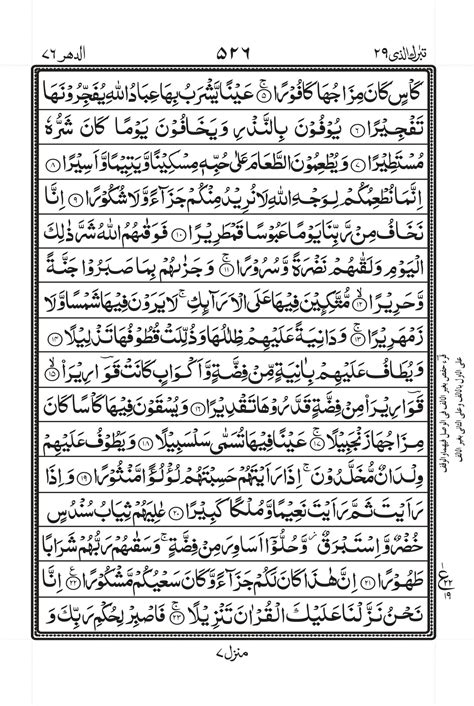 تبٰرك الذی ۲۹ ۵۲۶ الدهر ۷۶
كَاْسٍ كَانَ مِزَاجُهَا كَافُوْرًا ۚ‏﴿۵﴾ عَيْنًا يَّشْرَبُ بِهَا عِبَادُ اللّٰهِ يُفَجِّرُوْنَهَا
تَفْجِيْرًا ﴿۶﴾ يُوْفُوْنَ بِالنَّذْرِ وَيَخَافُوْنَ يَوْمًا كَانَ شَرُّهٗ
مُسْتَطِيْرًا ﴿۷﴾ وَيُطْعِمُوْنَ الطَّعَامَ عَلٰى حُبِّهٖ مِسْكِيْنًا وَّيَتِيْمًا وَّاَسِيْرًا ﴿۸﴾
اِنَّمَا نُطْعِمُكُمْ لِوَجْهِ اللّٰهِ لَا نُرِيْدُ مِنْكُمْ جَزَآءً وَّلَا شُكُوْرًا ﴿۹﴾ اِنَّا
نَخَافُ مِنْ رَّبِّنَا يَوْمًا عَبُوْسًا قَمْطَرِيْرًا ﴿۱۰﴾ فَوَقٰىهُمُ اللّٰهُ شَرَّ ذٰلِكَ
الْيَوْمِ وَلَقّٰىهُمْ نَضْرَةً وَّسُرُوْرًا ۚ‏﴿۱۱﴾ وَجَزٰىهُمْ بِمَا صَبَرُوْا جَنَّةً
وَّحَرِيْرًا ﴿۱۲﴾ مُّتَّكِـِٕيْنَ فِيْهَا عَلَى الْاَرَآىِٕكِ ۚ لَا يَرَوْنَ فِيْهَا شَمْسًا وَّلَا
زَمْهَرِيْرًا ۚ‏﴿۱۳﴾ وَدَانِيَةً عَلَيْهِمْ ظِلٰلُهَا وَذُلِّلَتْ قُطُوْفُهَا تَذْلِيْلًا ﴿۱۴﴾
وَيُطَافُ عَلَيْهِمْ بِاٰنِيَةٍ مِّنْ فِضَّةٍ وَّاَكْوَابٍ كَانَتْ قَوَارِيْرَا۠ ﴿۱۵﴾
قَوَارِيْرَا۠ مِنْ فِضَّةٍ قَدَّرُوْهَا تَقْدِيْرًا ﴿۱۶﴾ وَيُسْقَوْنَ فِيْهَا كَاْسًا كَانَ
مِزَاجُهَا زَنْجَبِيْلًا ۚ‏﴿۱۷﴾ عَيْنًا فِيْهَا تُسَمّٰى سَلْسَبِيْلًا ﴿۱۸﴾ وَيَطُوْفُ عَلَيْهِمْ
وِلْدَانٌ مُّخَلَّدُوْنَ ۚ اِذَا رَاَيْتَهُمْ حَسِبْتَهُمْ لُؤْلُؤًا مَّنْثُوْرًا ﴿۱۹﴾ وَاِذَا
رَاَيْتَ ثَمَّ رَاَيْتَ نَعِيْمًا وَّمُلْكًا كَبِيْرًا ﴿۲۰﴾ عٰلِيَهُمْ ثِيَابُ سُنْدُسٍ
خُضْرٌ وَّاِسْتَبْرَقٌ ز وَّحُلُّوْۤا اَسَاوِرَ مِنْ فِضَّةٍ ۚ وَسَقٰىهُمْ رَبُّهُمْ شَرَابًا
طَهُوْرًا ﴿۲۱﴾ اِنَّ هٰذَا كَانَ لَكُمْ جَزَآءً وَّكَانَ سَعْيُكُمْ مَّشْكُوْرًا ﴿۲۲﴾ اِنَّا
نَحْنُ نَزَّلْنَا عَلَيْكَ الْقُرْاٰنَ تَنْزِيْلًا ۚ‏﴿۲۳﴾ فَاصْبِرْ لِحُكْمِ رَبِّكَ وَ
منزل ۷